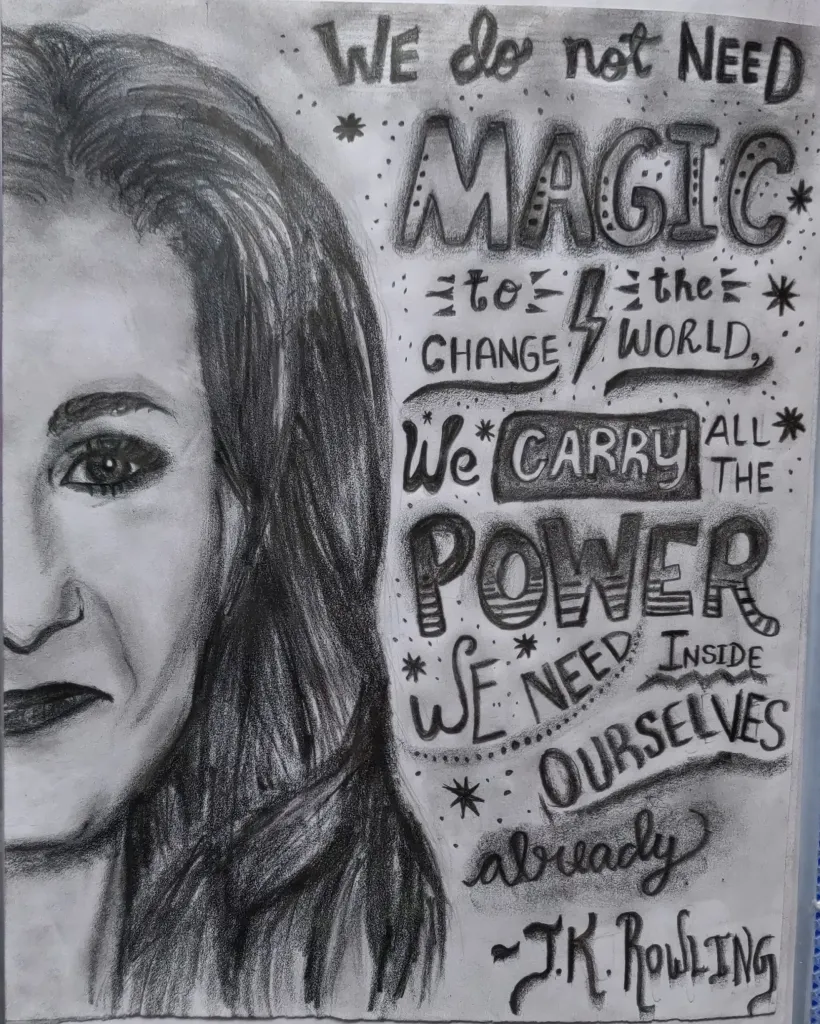 WE do not NEED
MAGIC
to the
CHANGE WORLD,
We CARRY ALL THE
POWER
WE NEED INSIDE
OURSELVES
already
~J.K. ROWLING